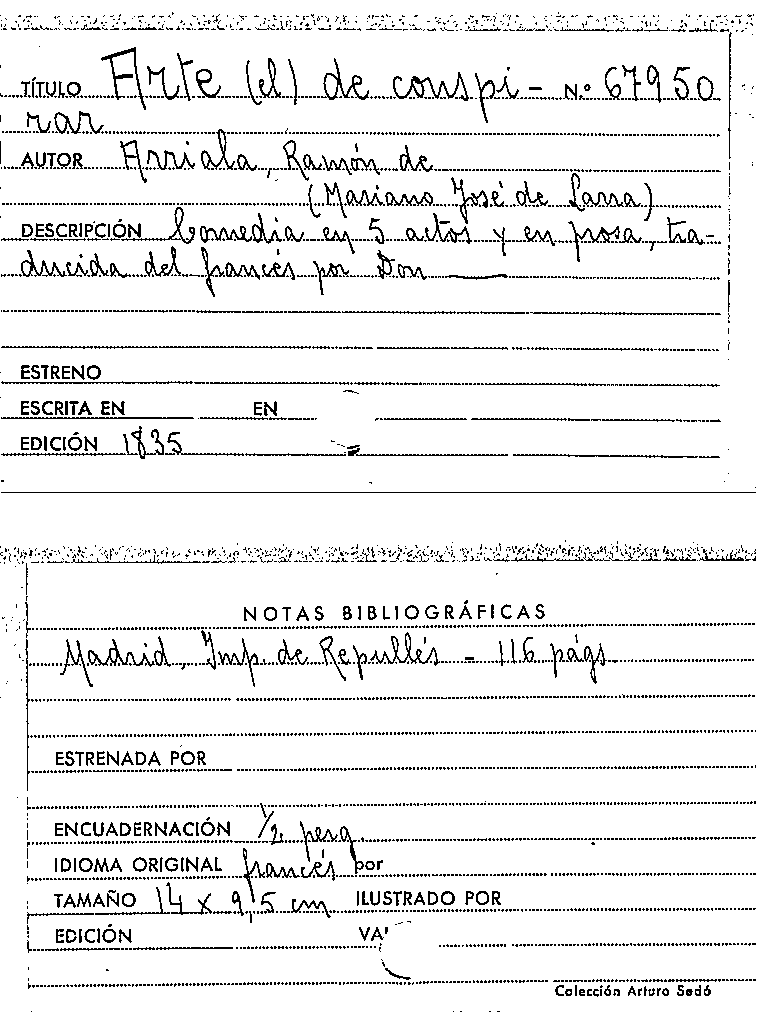 TÍTULO Arte (el) de conspi- N.º 67950
rar
AUTOR Arriala, Ramón de
(Mariano José de Larra)
DESCRIPCIÓN Comedia en 5 actos y en prosa, tra-
ducida del francés por Don ——
ESTRENO
ESCRITA EN EN
EDICIÓN 1835
NOTAS BIBLIOGRÁFICAS
Madrid, Imp. de Repullés - 116 págs.
ESTRENADA POR
ENCUADERNACIÓN 1/2 perg.
IDIOMA ORIGINAL francés por
TAMAÑO 14 x 9,5 cm ILUSTRADO POR
EDICIÓN
Colección Arturo Sedó